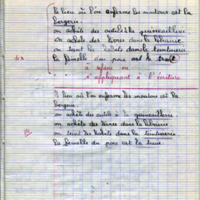 Le lieu où l'on enferme les moutons est la
bergerie.
on achète des outils à la quincaillerie
on achète des livres dans la librairie
on teint les habits dans la teinturerie
la femelle du porc est la truie
à refaire en
s'appliquant à l'écriture
Le lieu où l'on enferme les moutons est la
bergerie.
on achète des outils à la quincaillerie
on achète des livres dans la librairie
on teint les habits dans la teinturerie
la femelle du porc est la truie